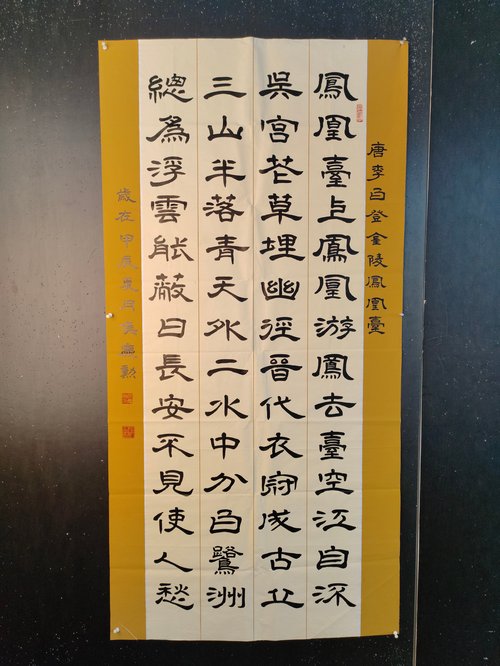 唐李白登金陵鳳凰臺
鳳凰臺上鳳凰游鳳去臺空江自流
吳宮花草埋幽徑晉代衣冠成古丘
三山半落青天外二水中分白鷺洲
總爲浮雲能蔽日長安不見使人愁
歲在甲辰夏月